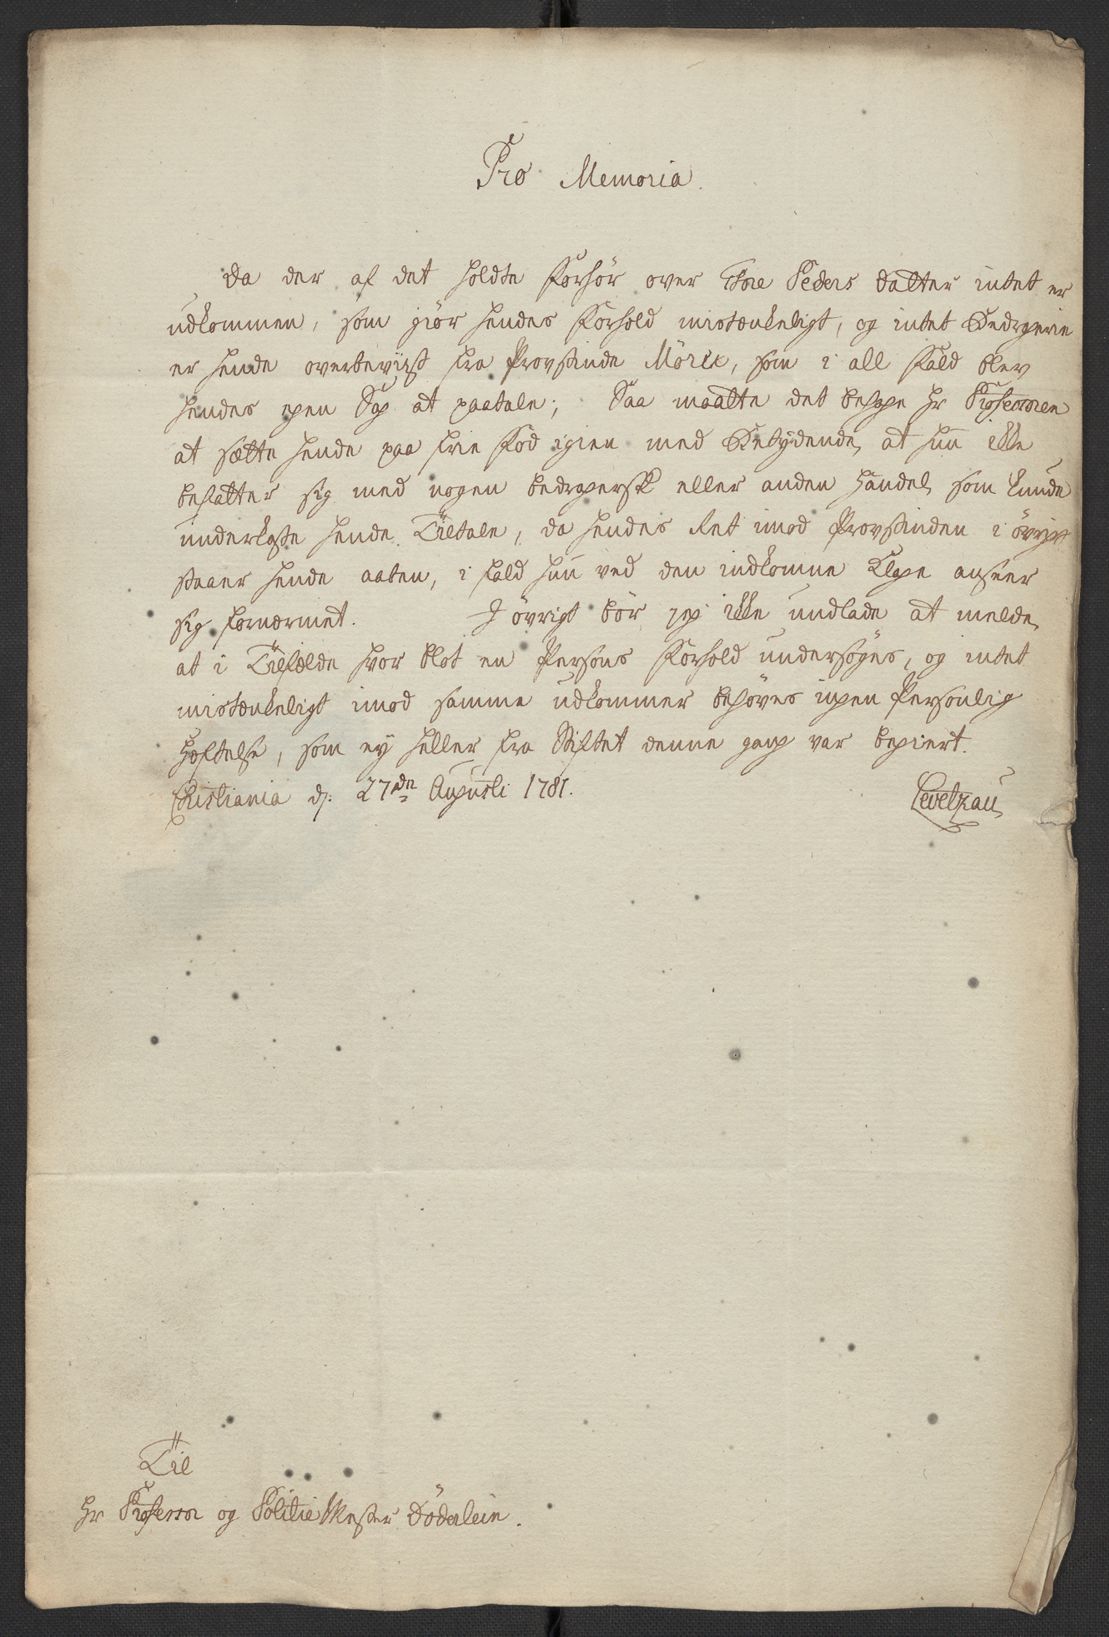 Pro Memoria.
Da der af det holdte Forhör over Thore Peders Datter intet er
udkommen, som giör hendes Forhold mistænkeligt, og intet Bedragerie
er hende overbeviist fra Provstinde Mörck, som i all Fald blev
hendes egen Sag at paatale; Saa maatte det behage Hr Professoren
at sætte hende paa frie Fod igien med Betydende, at hun ikke
befatter sig med nogen bedragersk eller anden Handel, som kunde
underkaste hende Tiltale, da hendes Ret imod Provstinden i övrigt
staaer hende aaben, i fald hun ved den indkomne Klage anseer
sig fornærmet. I övrigt bör jeg ikke undlade at melde,
at i Tilfælde hvor blot en Persons Forhold undersöges, og intet
mistænkeligt imod samme udkommer behöves ingen Personlig
Hæftelse, som ey heller fra Stiftet denne gang var begiert.
Christiania d: 27de Augusti 1781. Levetzau
Til
Hr Professor og Politie Mester Döderlein.